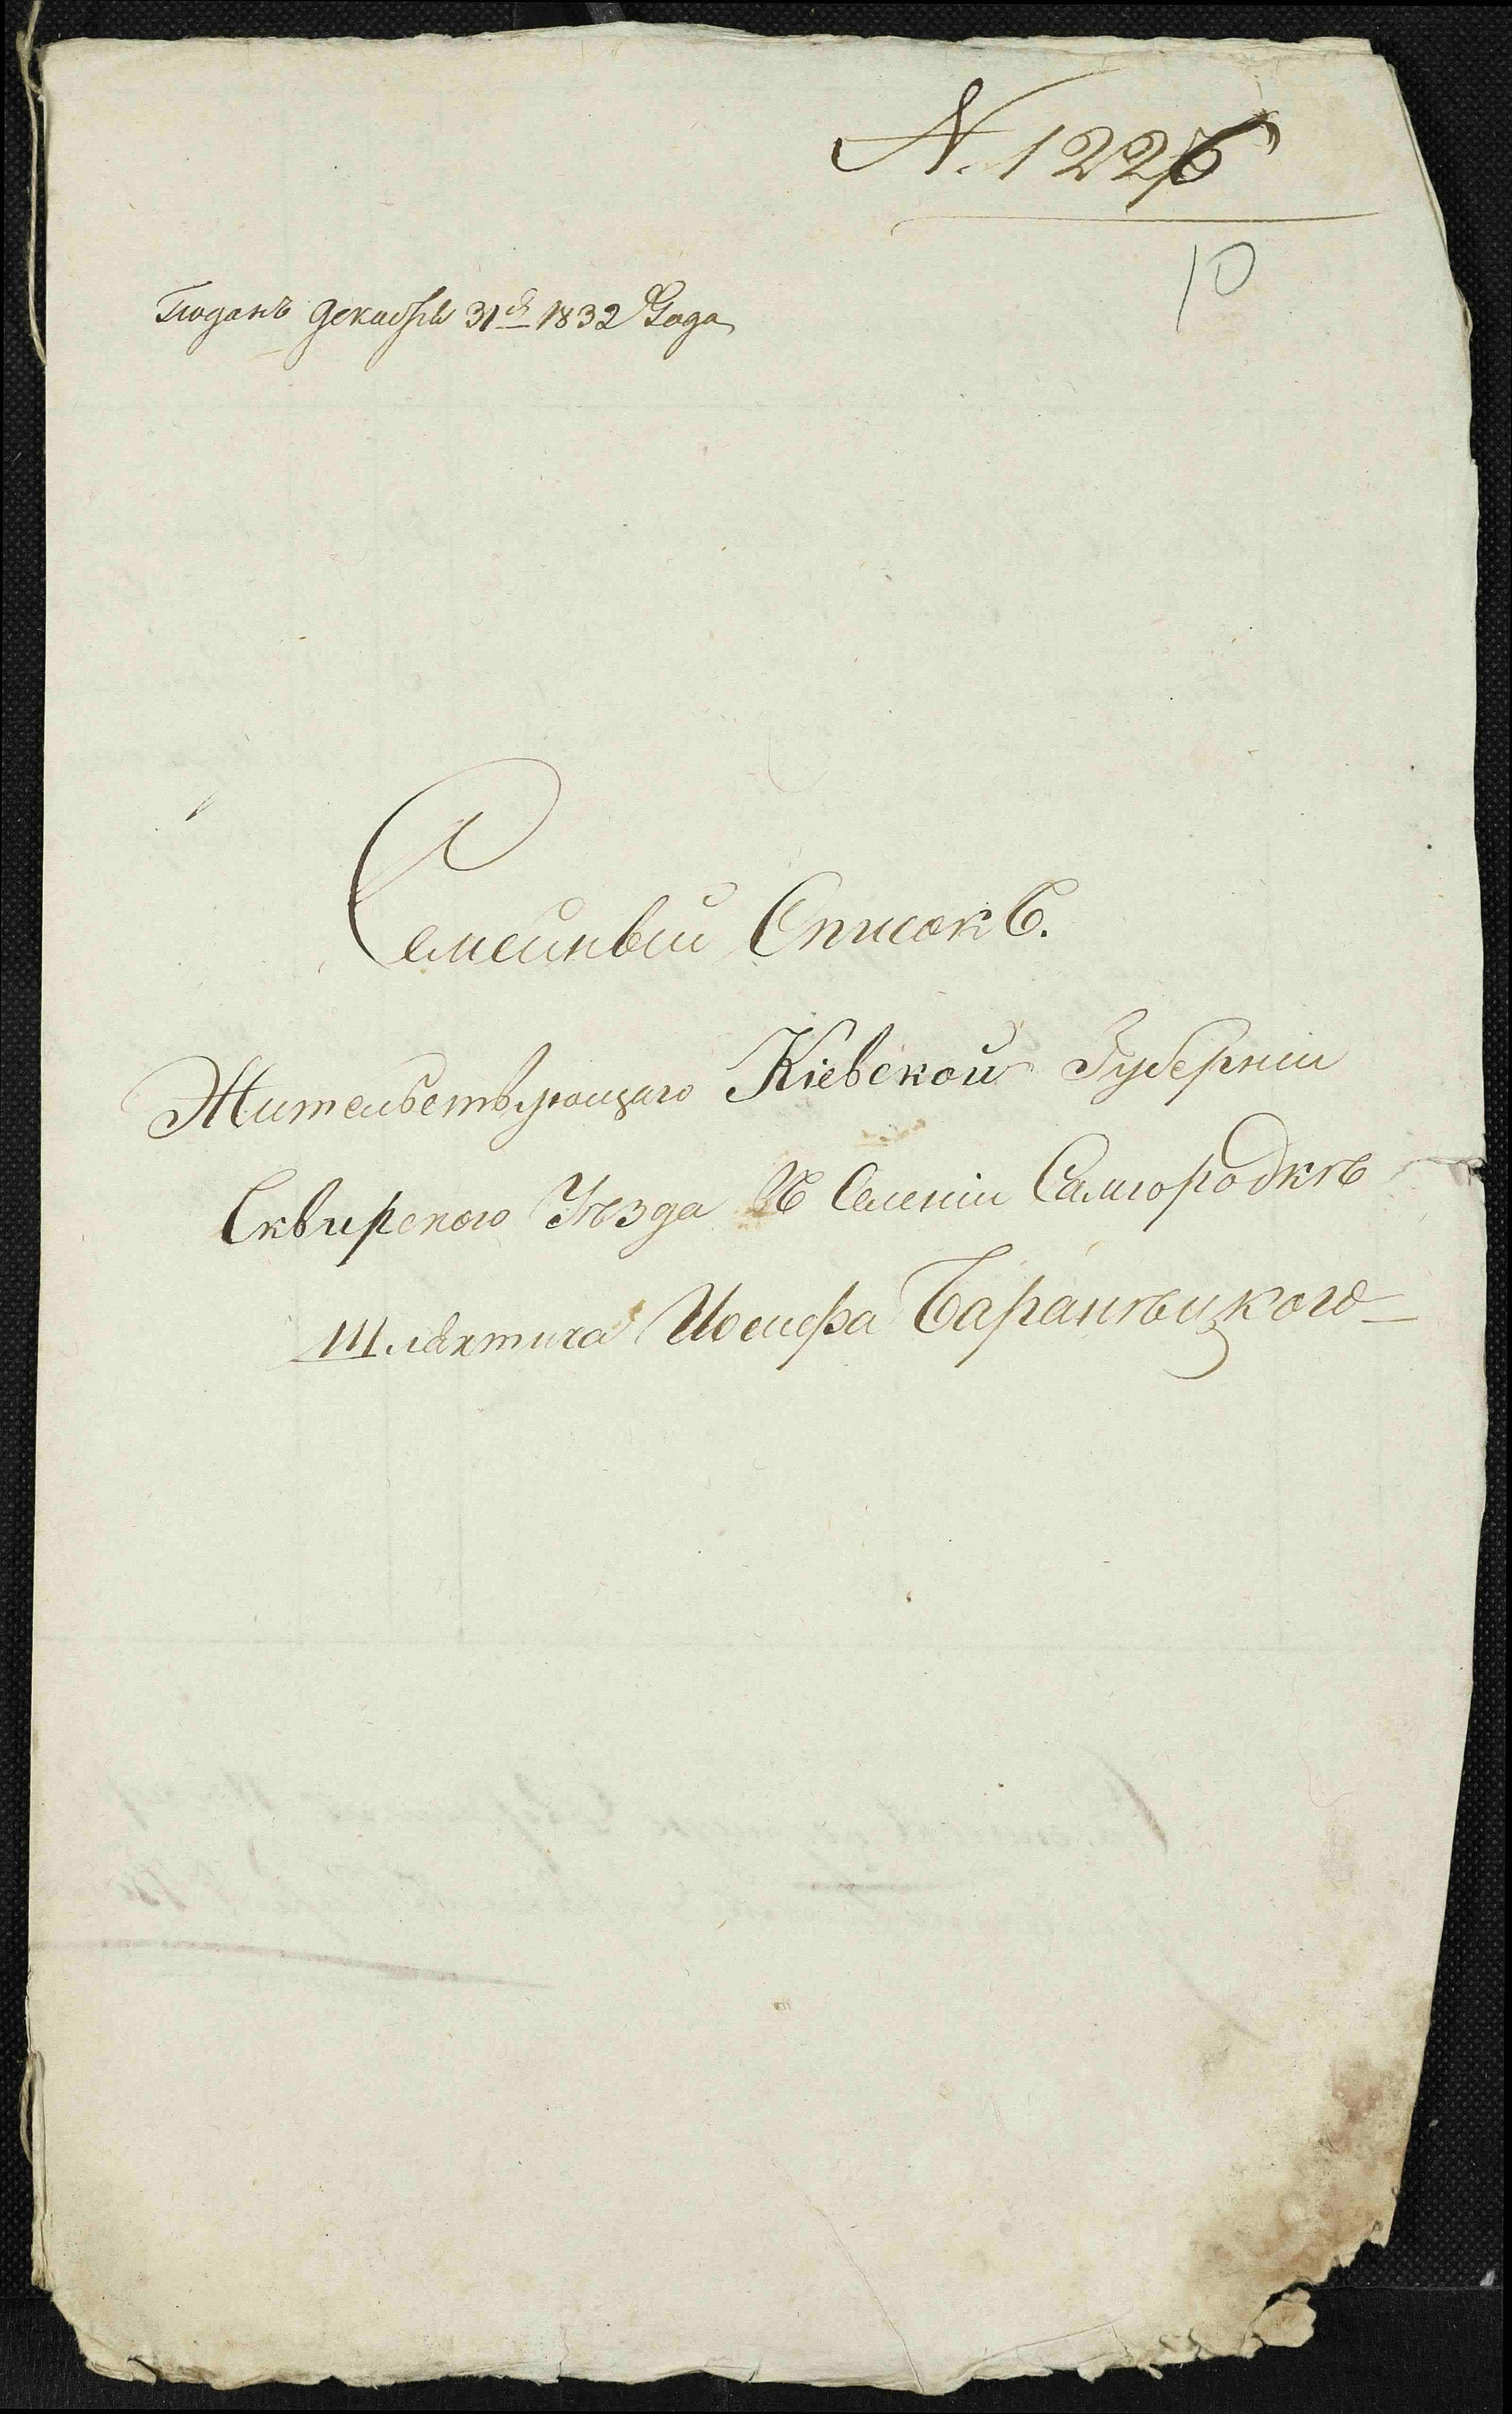 N. 1226
10
Поданъ декабря 31го 1832 Года
Семейный Списокъ.
Жительствующаго Кіевской Губерніи
Сквирского Уѣзда въ Селеніи Самгородкѣ
Шляхтича Иосифа Баранѣцкого